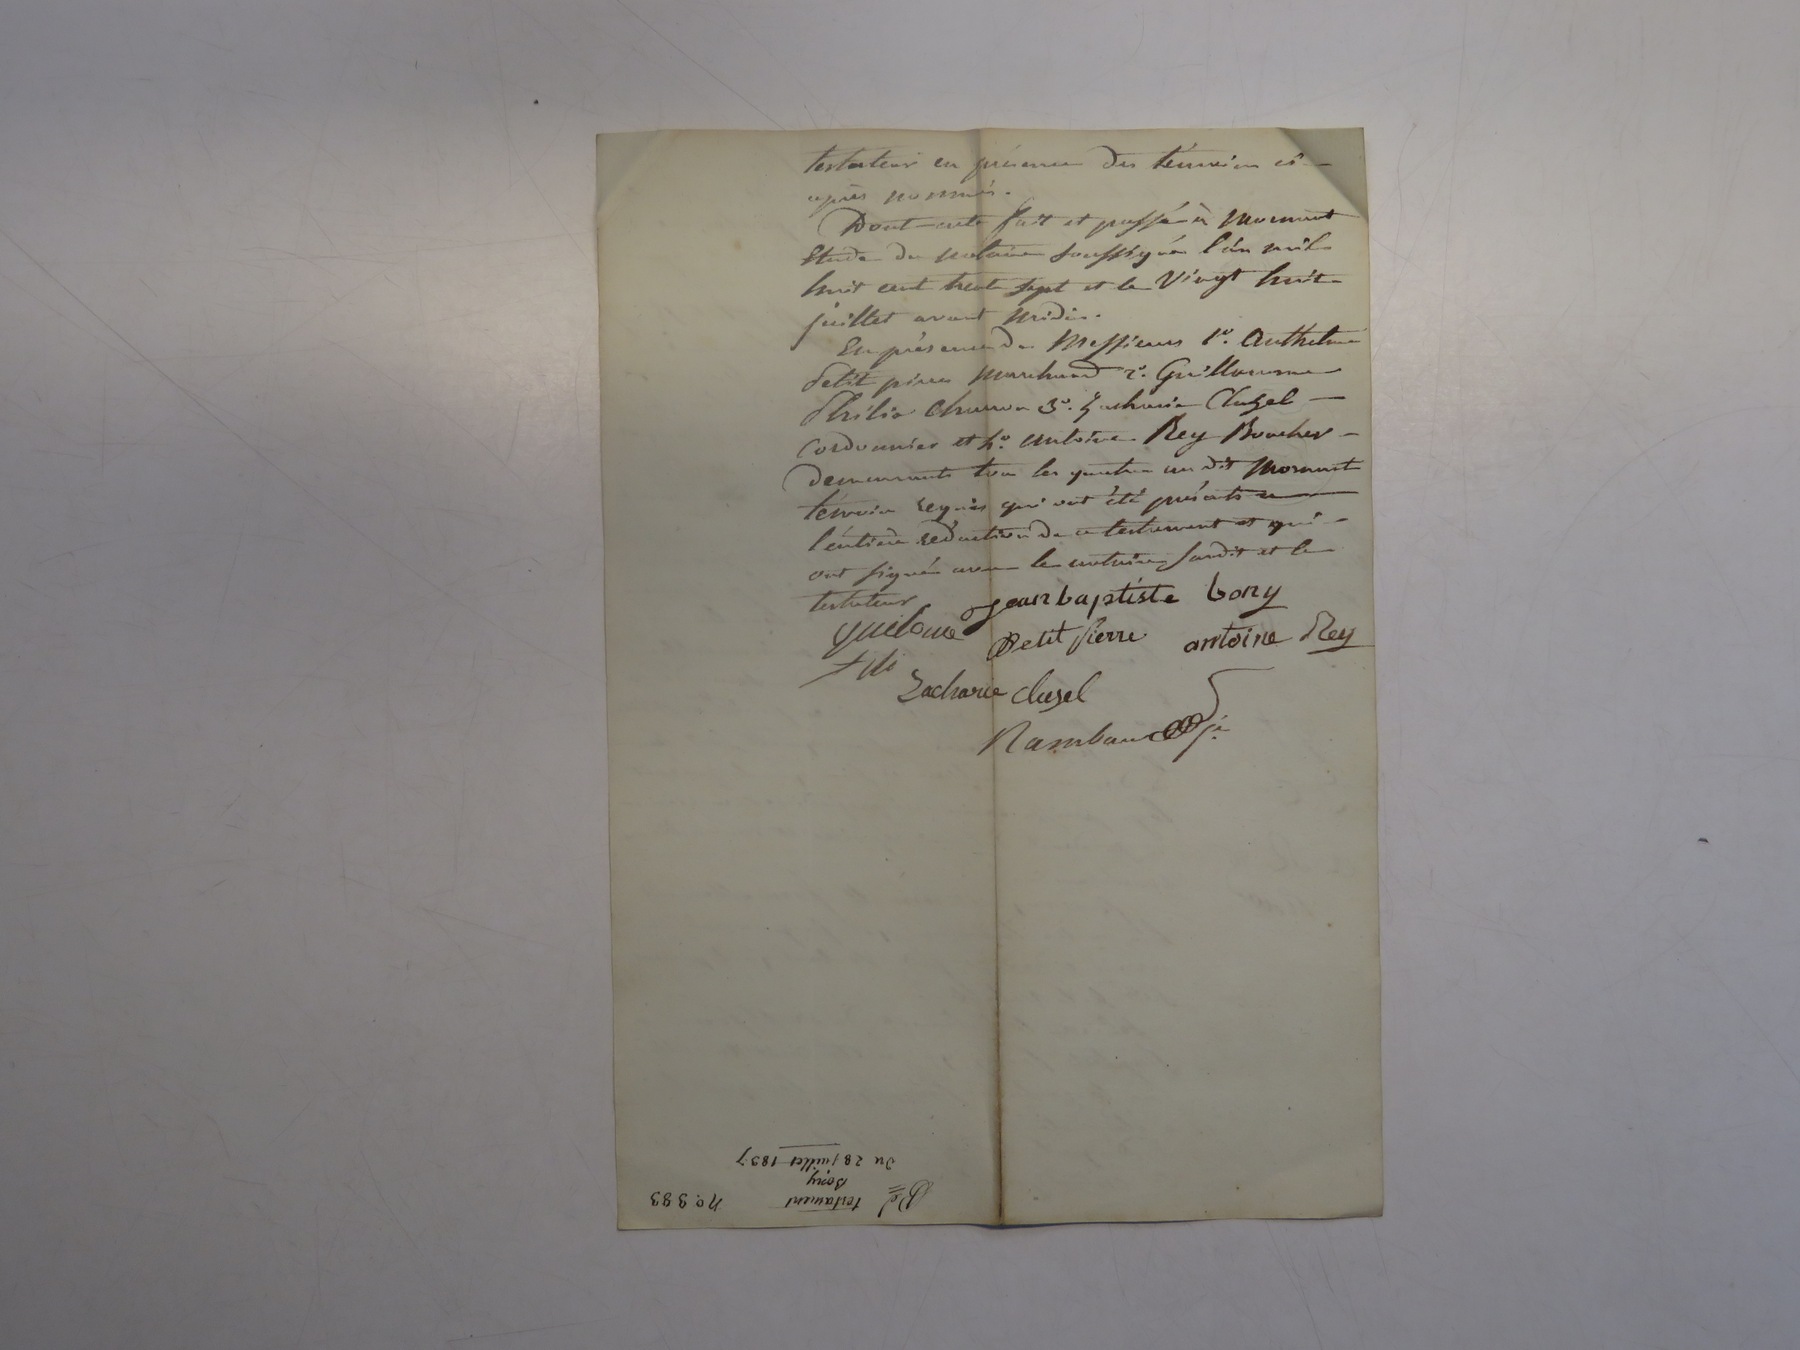 testateur en présence des témoins ci-
après nommés.
Dont-acte fait et passé à Mornant
Etude du notaire soussigné l'an mil
huit cent trente sept et le vingt huit
juillet avant midi.
En présence de Messieurs 1º. Anthelme
Petit pierre Marchand 2º. Guillaume
Philis 3º. Zacharie Cluzel
Cordonnier et 4º. Antoine Rey Boucher
demeurants tous les quatre au dit Mornant
témoins requis qui ont été présents a
l'entière rédaction de ce testament et qui
ont signés avec le notaire susdit et le
testateur
jean baptiste bony
Petit pierre antoine Rey
Zacharie clusel
Rambaud
Du 28 juillet 1837
Bony
testament
No. 383